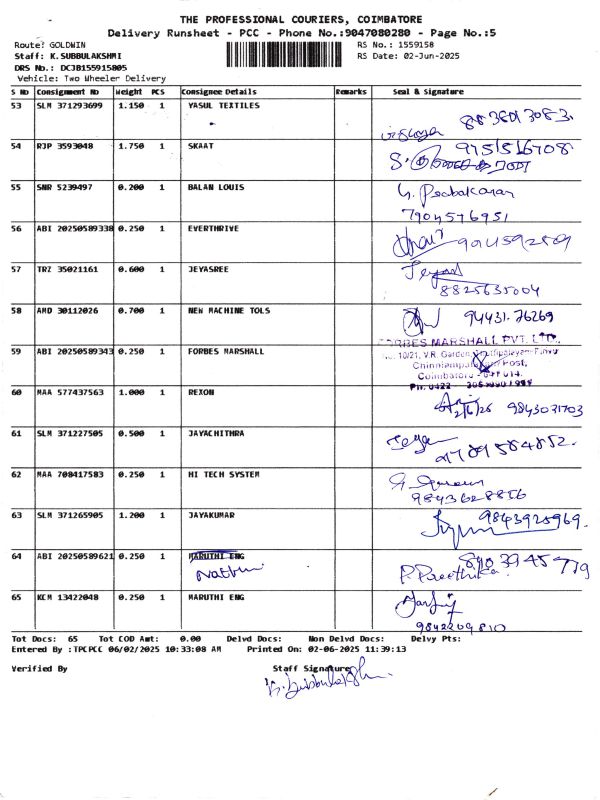 THE PROFESSIONAL COURIERS, COIMBATORE
Delivery Runsheet - PCC - Phone No.:9047080280 - Page No.:5
Route: GOLDWIN RS No.: 1559158
Staff: K.SUBBULAKSHMI RS Date: 02-Jun-2025
DRS No.: DCJB155915805
Vehicle: Two Wheeler Delivery
S No Consignment No Weight PCS Consignee Details Remarks Seal & Signature
53 SLM 371293699 1.150 1 YASUL TEXTILES
54 RJP 3593048 1.750 1 SKAAT 9751516708
55 SNR 5239497 0.200 1 BALAN LOUIS
7904576951
56 ABI 20250589338 0.250 1 EVERTHRIVE
57 TRZ 35021161 0.600 1 JEYASREE
8825635004
58 AMD 30112026 0.700 1 NEW MACHINE TOLS 94431.76269
FORBES MARSHALL PVT. LTD.
59 ABI 20250589343 0.250 1 FORBES MARSHALL
60 MAA 577437563 1.000 1 REXON 9843031703
61 SLM 371227505 0.500 1 JAYACHITHRA
62 MAA 708417583 0.250 1 HI TECH SYSTEM
9843628856
63 SLM 371265905 1.200 1 JAYAKUMAR 9843925969.
64 ABI 20250589621 0.250 1 MARUTHI ENG
65 KCM 13422048 0.250 1 MARUTHI ENG
9842209810
Tot Docs: 65 Tot COD Amt: 0.00 Delvd Docs: Non Delvd Docs: Delvy Pts:
Entered By :TPCPCC 06/02/2025 10:33:08 AM Printed On: 02-06-2025 11:39:13
Verified By Staff Signature
K. Subbulakshmi